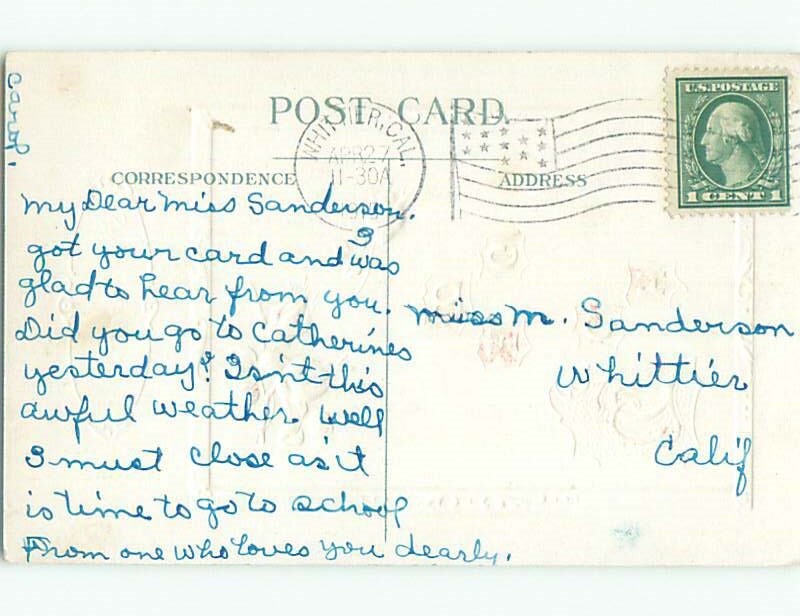 Carol.
POST CARD.
WHITTIER, CAL.
APR 27
11-30A
U.S. POSTAGE
1 CENT 1
CORRESPONDENCE
ADDRESS
My Dear Miss Sanderson.
I
got your card and was
glad to hear from you.
Did you go to Catherines
yesterday? Isn't this
awful weather. Well
I must close as it
is time to go to school
From one who loves you dearly.
Miss M. Sanderson
Whittier
Calif